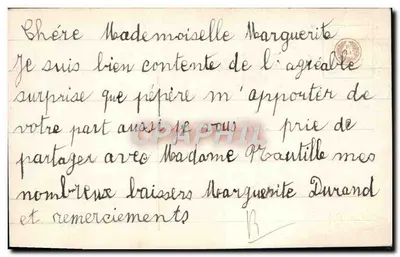 Chére Mademoiselle Marguerite
Je suis bien contente de l'agréable
surprise que pépére m'apporter de
votre part aussi je vous prie de
partager avec Madame mes
nombreux baissers Marguerite Durand
et remerciements
R